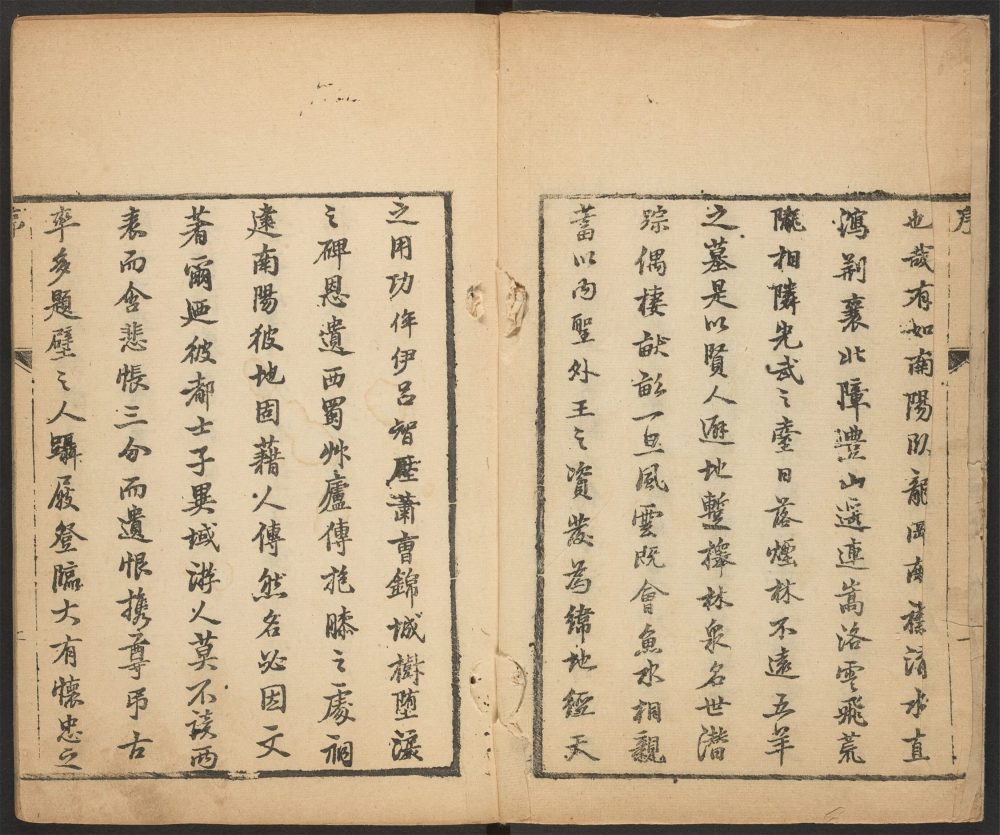 序
也哉有如南陽臥龍岡南襟淯水直
瀉荊襄北障豐山遥連嵩洛雲飛荒
隴相隣光武之臺日落煙林不遠五羊
之墓是以賢人避地暫擇林泉名世潛
踪偶棲畎畝一旦風雲既會魚水相親
蓄以內聖外王之資發為緯地經天
之用功侔伊呂智壓蕭曹錦城樹墮淚
之碑恩遺西蜀艸廬傳抱膝之處祠
建南陽彼地固藉人傳然名必因文
著爾迺彼都士子異域游人莫不讀兩
表而含悲悵三分而遺恨携尊弔古
率多題壁之人躡屐登臨大有懷忠之
序